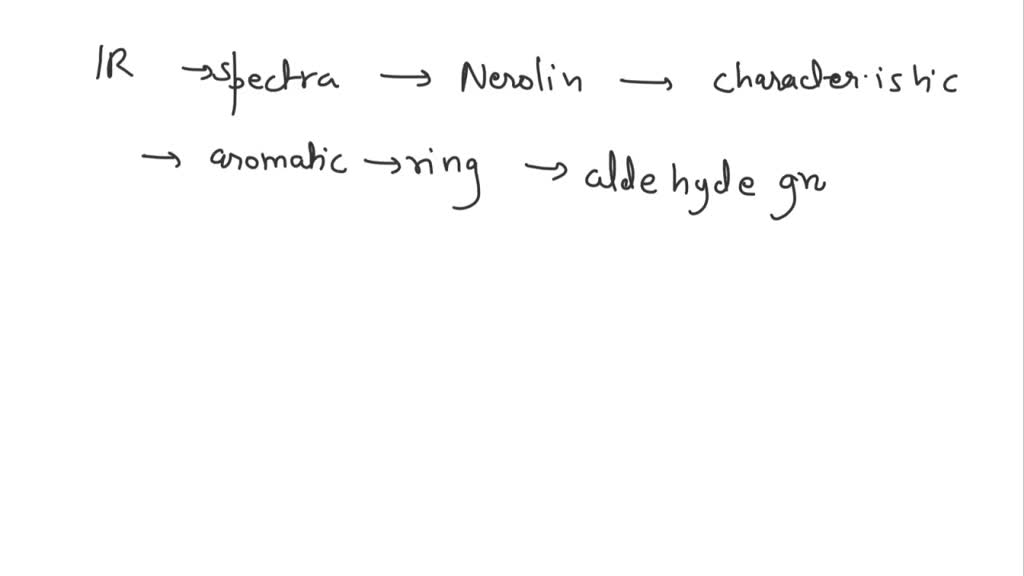 IR → spectra → Nerolin → characteristic
→ aromatic → ring → aldehyde gr